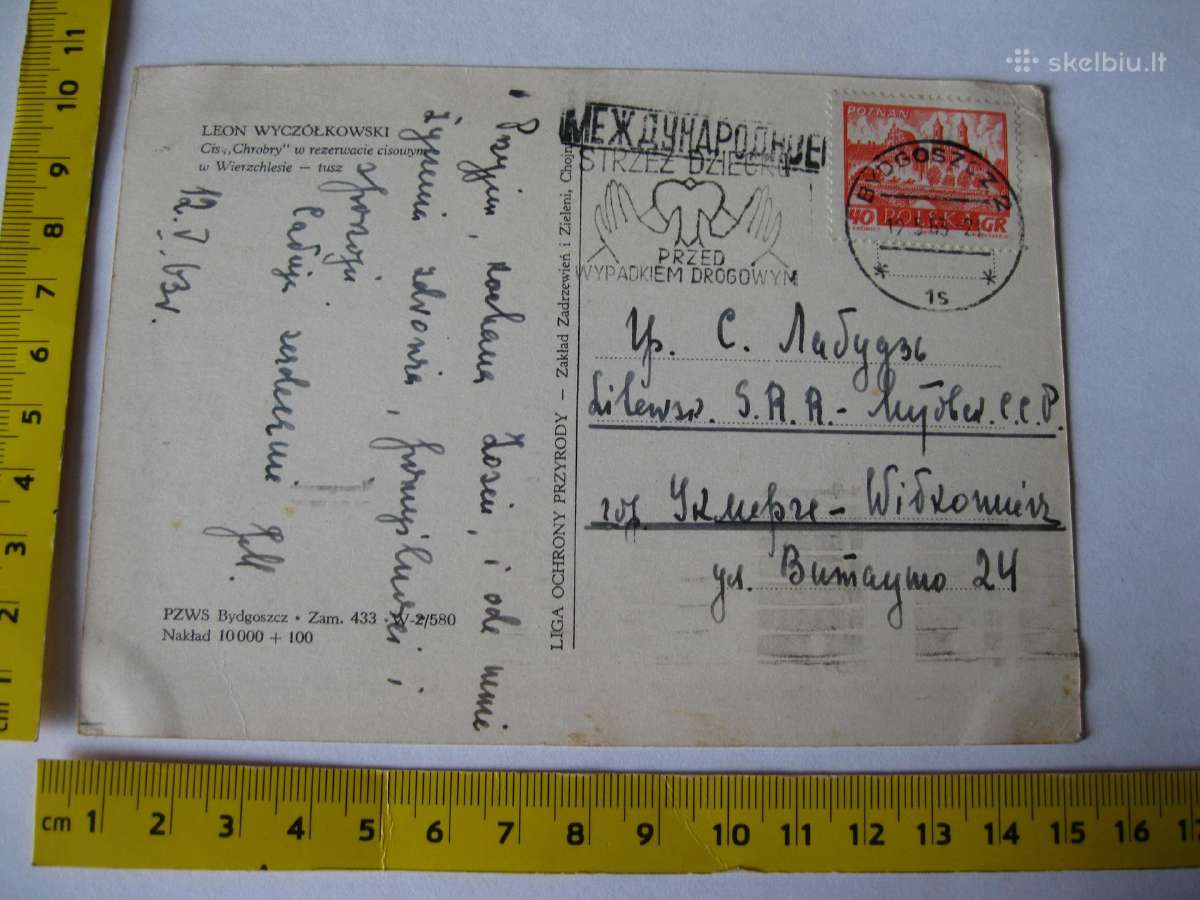 skelbiu.lt
LEON WYCZÓŁKOWSKI
Cis „Chrobry” w rezerwacie cisowym
w Wierzchlesie — tusz
12.V.63r.
Przyjm, kochana Zosiu, i ode mnie
życzenia zdrowia, pomyślności i
spokoju
Całuję serdecznie
PZWS Bydgoszcz • Zam. 433 W-2/580
Nakład 10 000 + 100
LIGA OCHRONY PRZYRODY — Zakład Zadrzewień i Zieleni, Chojn
МЕЖДУНАРОДНОЕ
STRZEŻ DZIECKO
PRZED
WYPADKIEM DROGOWYM
POZNAŃ
40 POLSKA GR
BYDGOSZCZ 2
1s
*
*
Гр. С. Лабудзь
Litewsk. S.R.R. - Лит
гор. Укмерге - Wiłkomierz
ул. Витауто 24
11 10 9 8 7 6 5 4 3 2 1 cm
cm 1 2 3 4 5 6 7 8 9 10 11 12 13 14 15 16 1